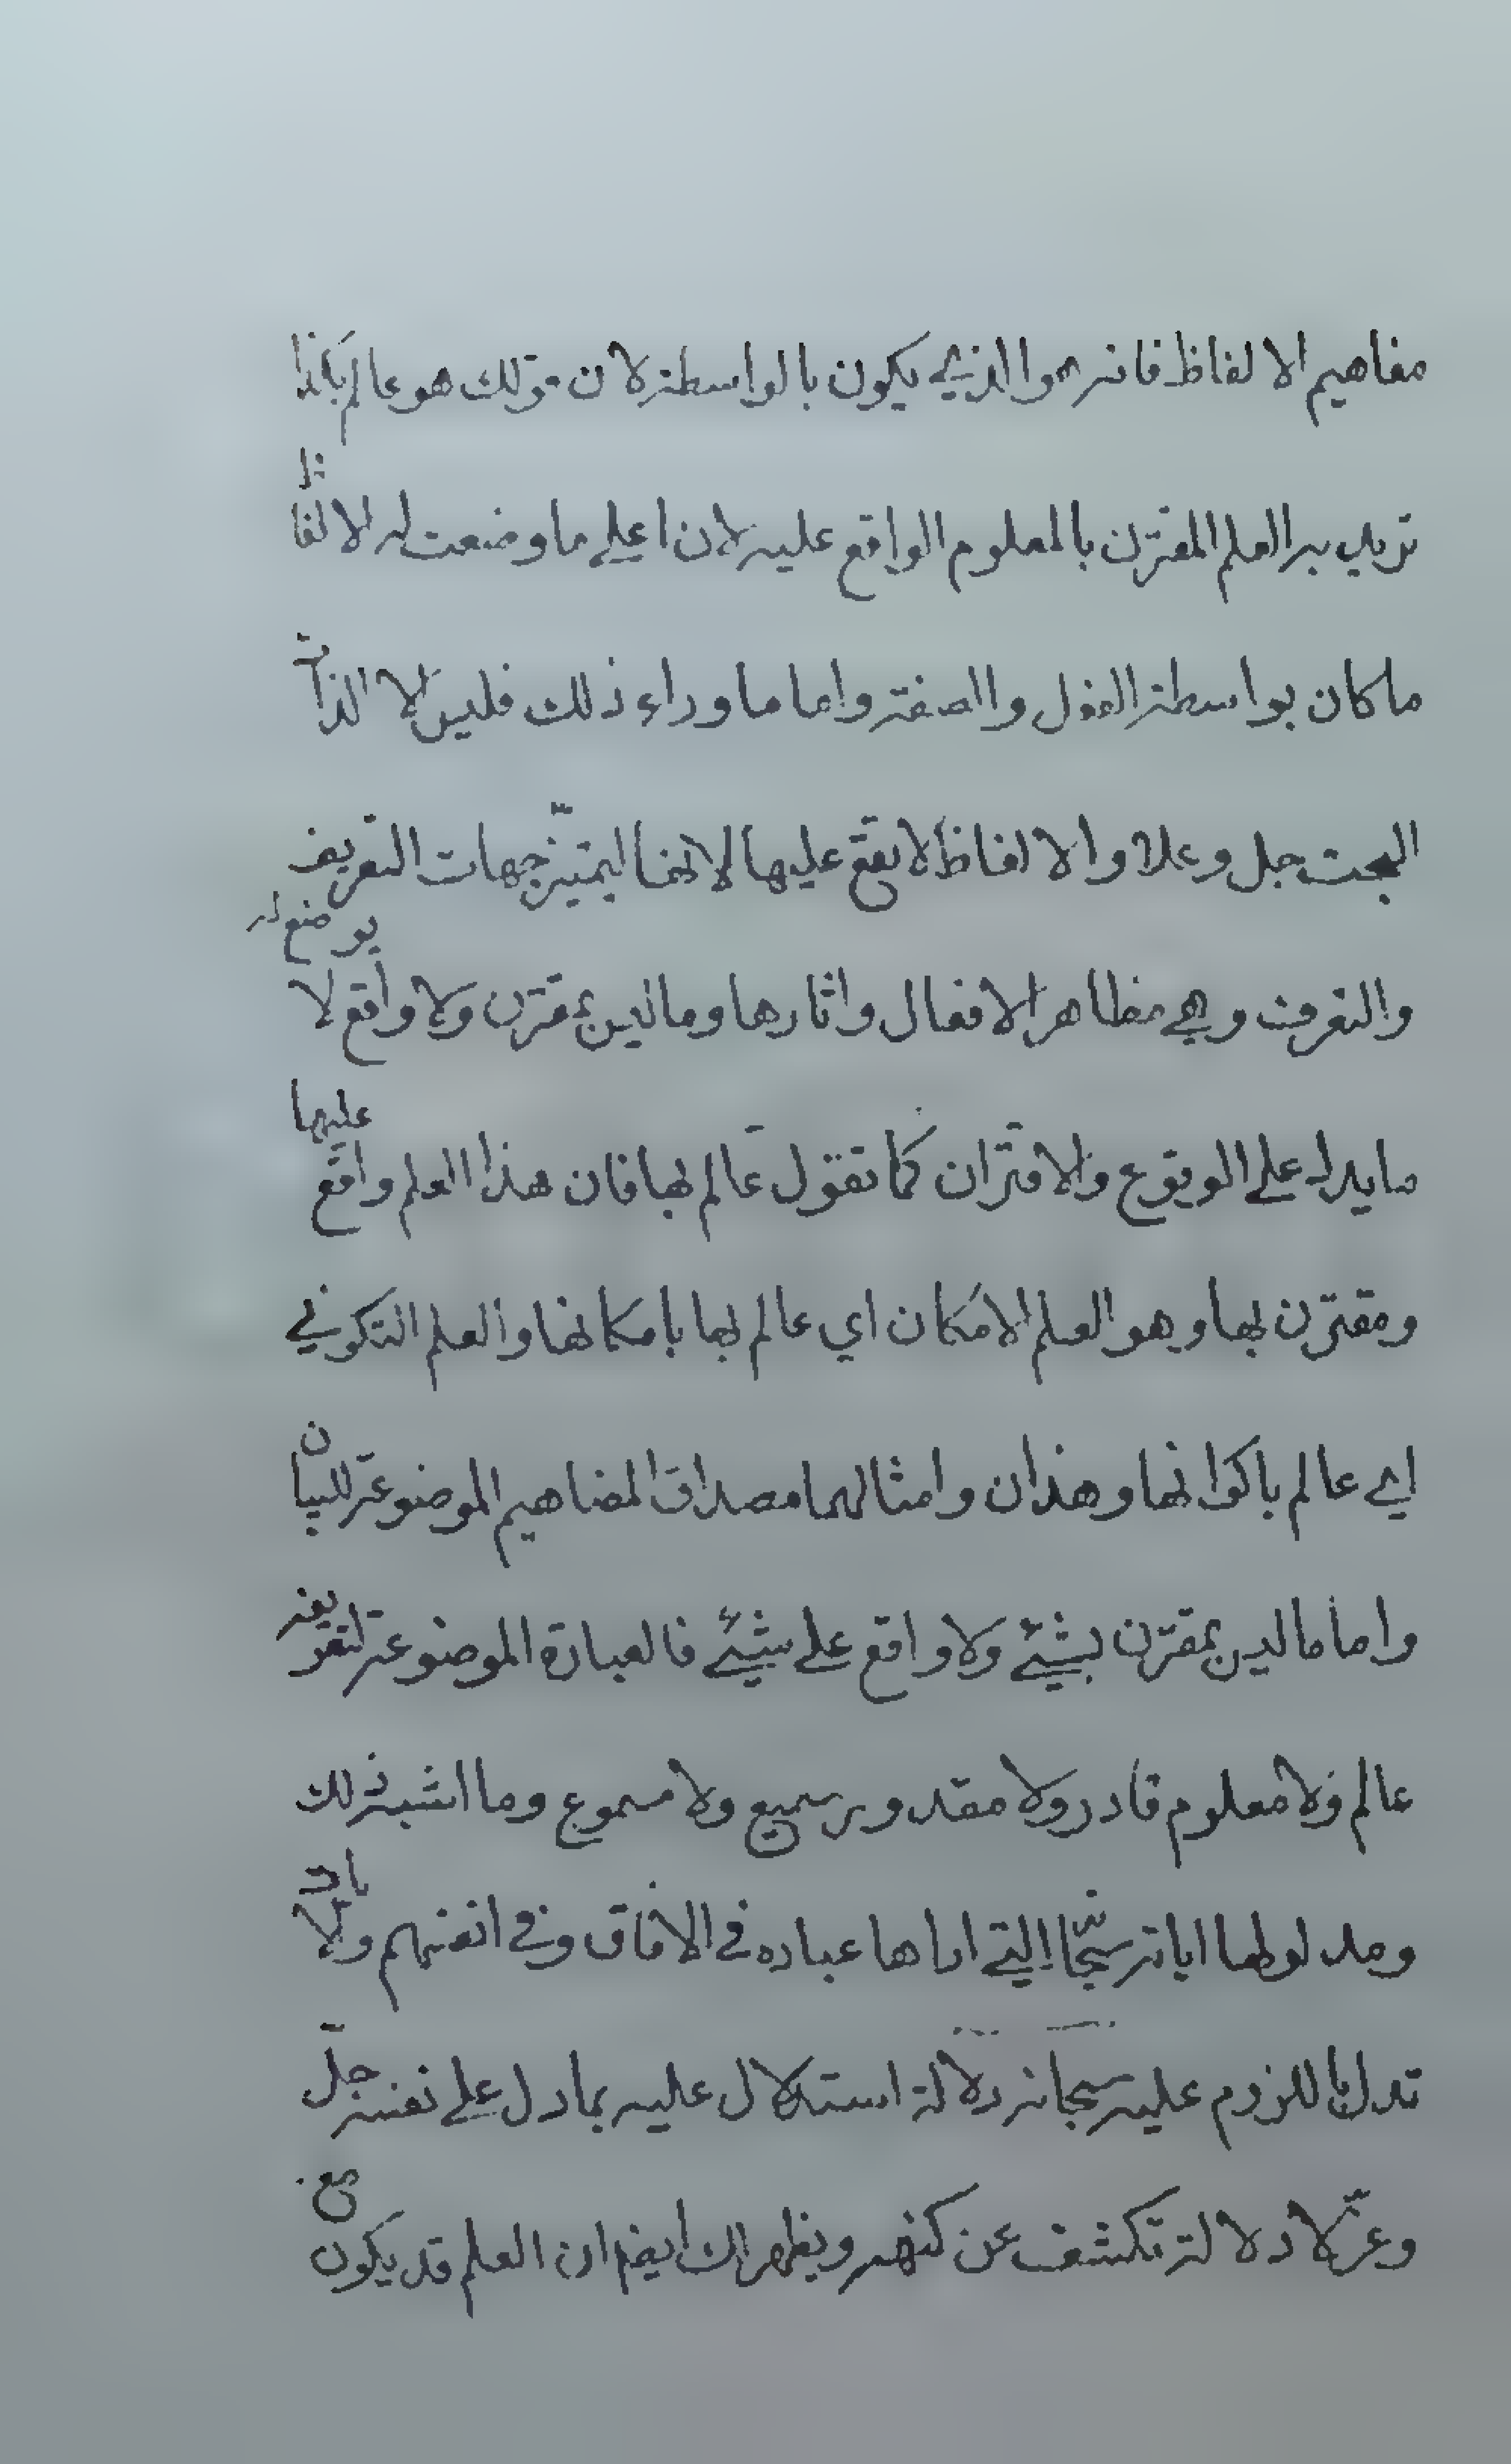 مفاهيم الالفاظ فانه هو الذي يكون بالواسطة لان قولك هو عالم بكذا
تريد به العلم المقترن بالمعلوم الواقع عليه لان اعلى ما وضعت له الالفاظ
ما كان بواسطة الفعل والصفة واما ما وراء ذلك فليس الا الذات
البحت جل وعلا والالفاظ لا تقع عليها لانها لتمييز جهات التعريف
والتعرف وهي مظاهر الافعال واثارها وما ليس بمقترن ولا واقع لا يوضع له
ما يدل على الوقوع والاقتران كما تقول عالم بها فان هذا العلم واقع عليها
ومقترن بها وهو العلم الامكان اي عالم بها بامكانها والعلم التكويني
اي عالم باكوانها وهذان وامثالهما مصداق المفاهيم الموضوعة للبيان
واما ما ليس بمقترن بشيئ ولا واقع على شيئ فالعبارة الموضوعة لتعريفه
عالم ولا معلوم قادر ولا مقدور سميع ولا مسموع وما اشبه ذلك
ومدلولها اياته سبحا التي اراها عباده في الافاق وفي انفسهم ولا يراد
تدل باللزوم عليه سبحانه دلالة استدلال عليه بما دل على نفسه جل
وعز لا دلالة تكشف عن كنهه ويظهر لك ايضا ان العلم قد يكون مع